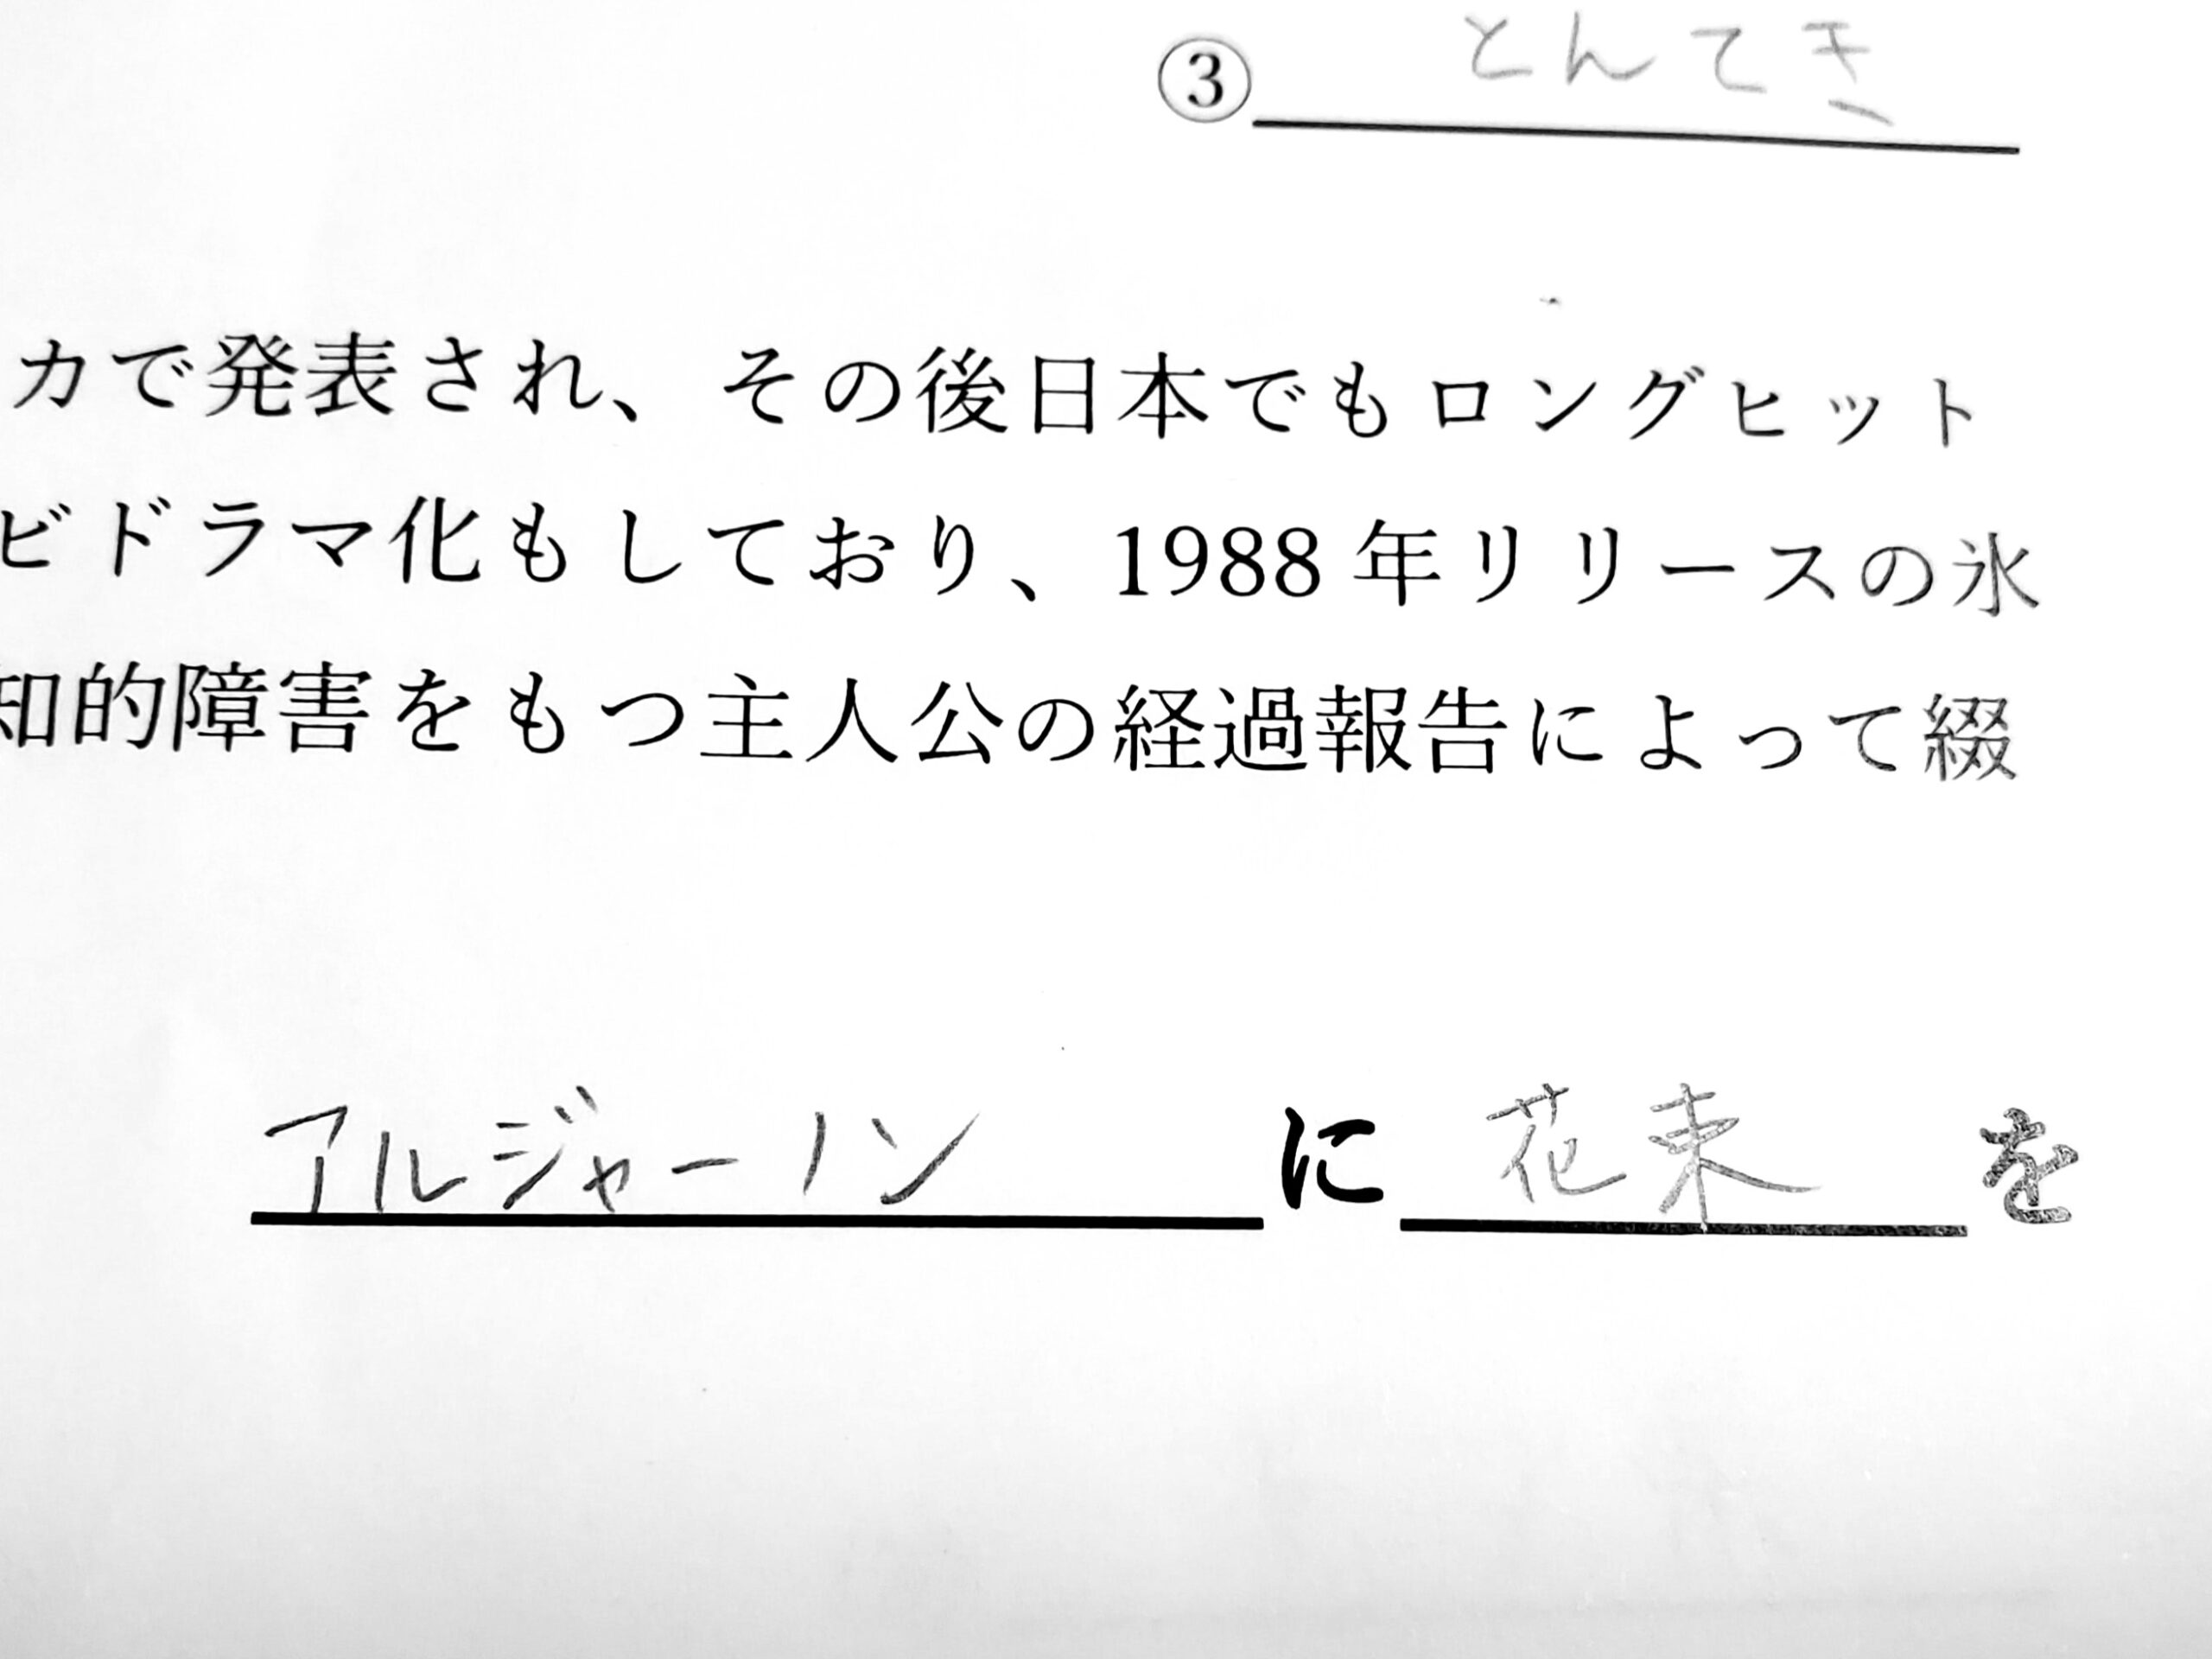 ③ とんてき
カで発表され、その後日本でもロングヒット
ビドラマ化もしており、1988年リリースの氷
知的障害をもつ主人公の経過報告によって綴
アルジャーノンに花束を